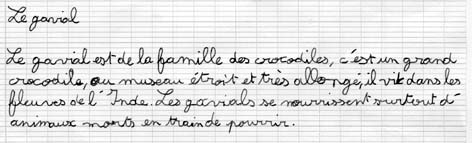 Le gavial
Le gavial est de la famille des crocodiles, c'est un grand
crocodile, au museau étroit et très allongé, il vit dans les
fleuves de l'Inde. Les gavials se nourrissent surtout d'
animaux morts en train de pourrir.